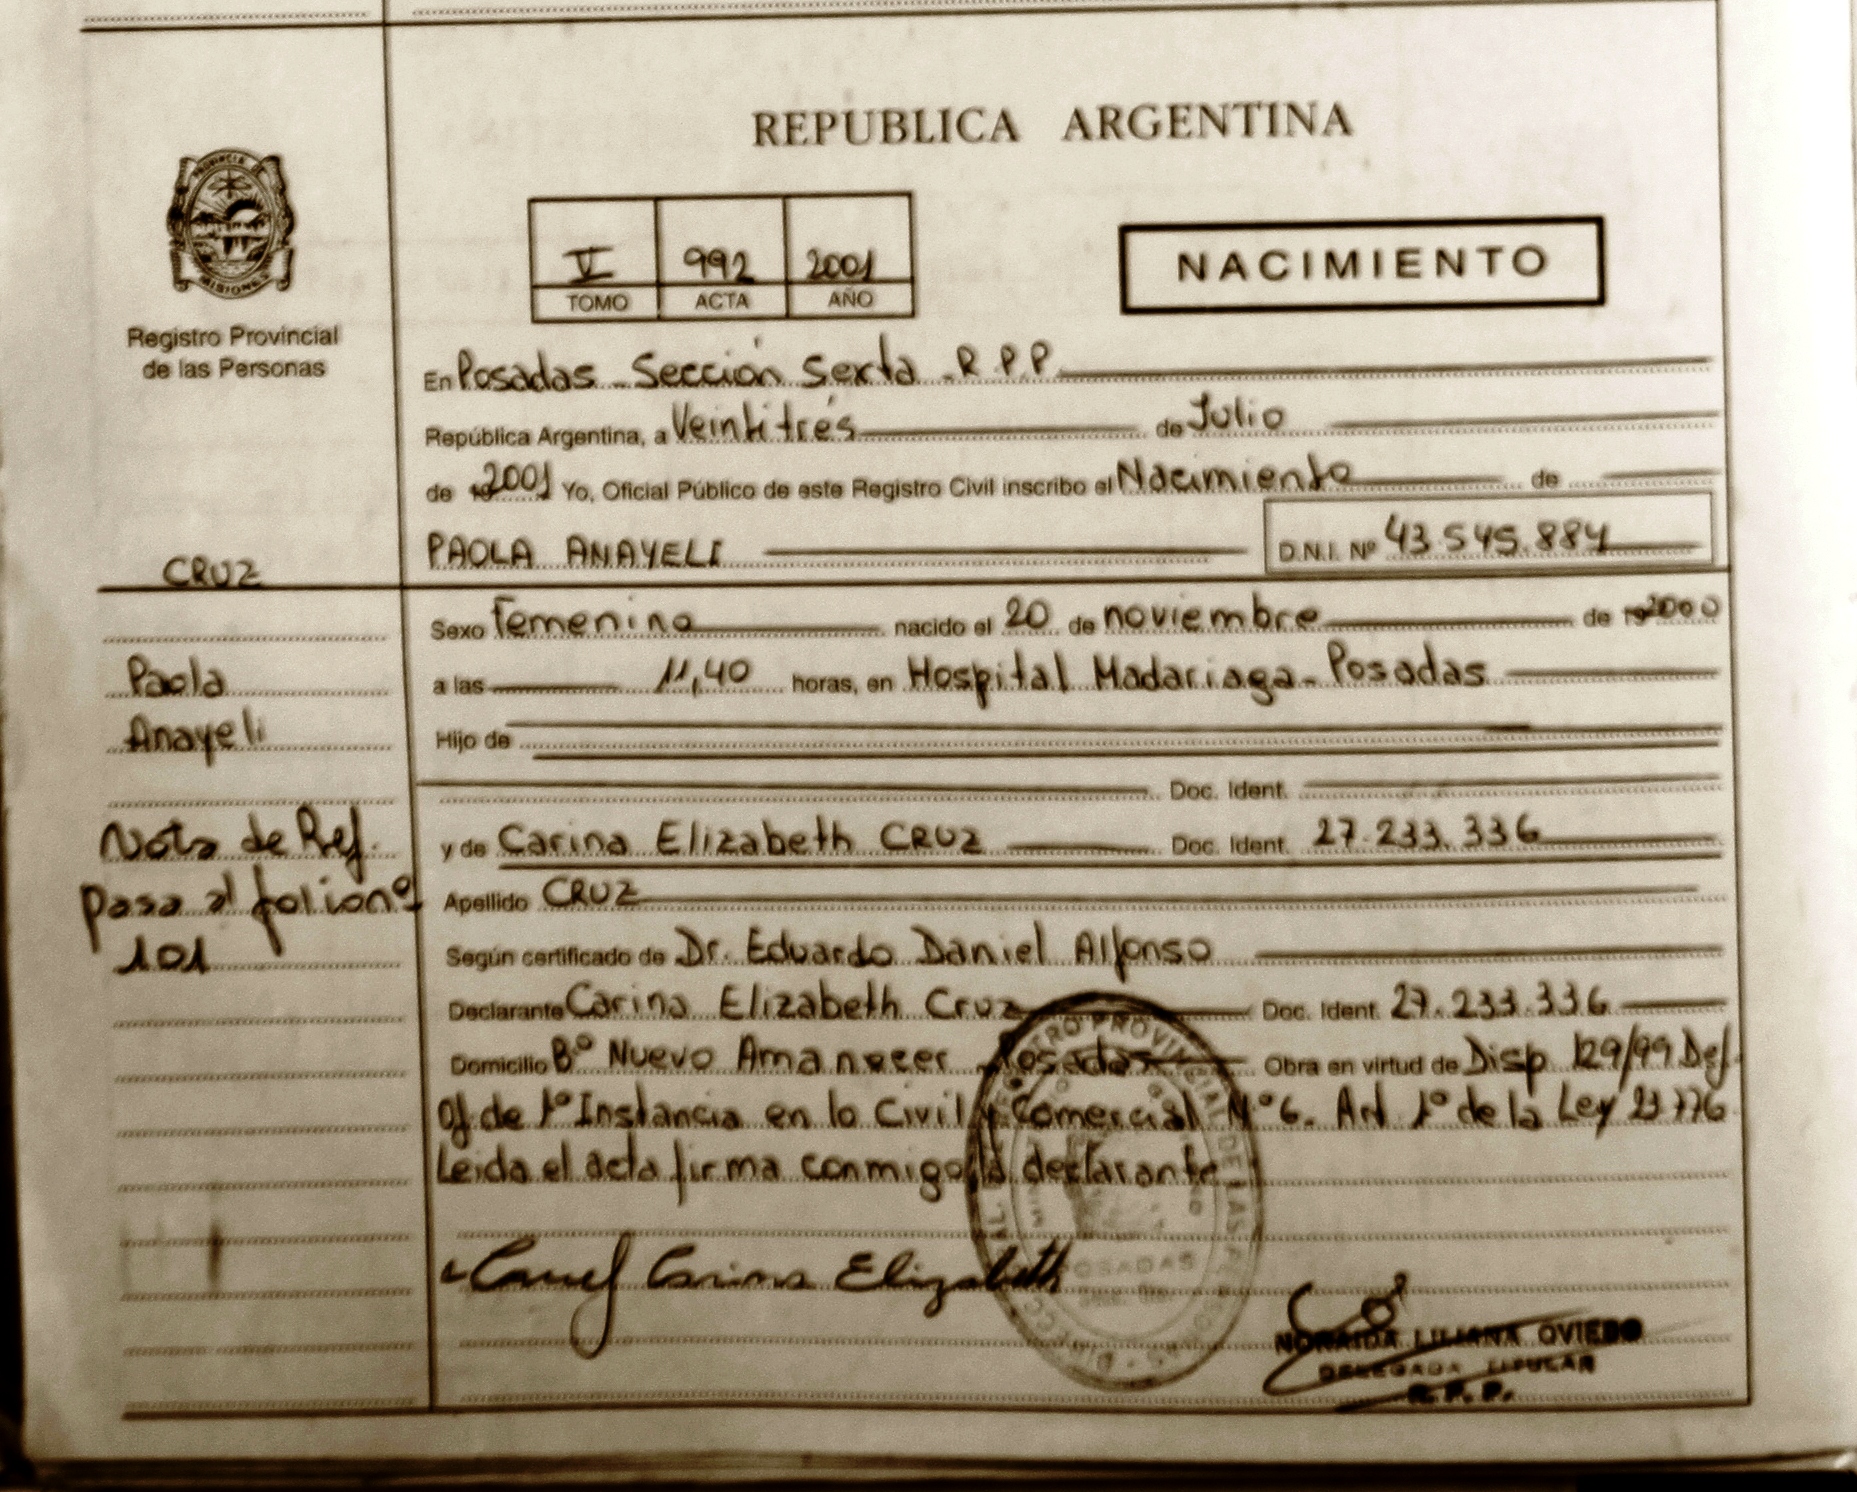 REPUBLICA ARGENTINA
PROVINCIA DE
MISIONES
Registro Provincial
de las Personas
V 992 2001
TOMO ACTA AÑO
NACIMIENTO
En Posadas - Sección Sexta - R.P.P.
República Argentina, a Veintitrés de Julio
de 2001 Yo, Oficial Público de este Registro Civil inscribo el Nacimiento de
PAOLA ANAYELI D.N.I. Nº 43.545.884
CRUZ
Sexo Femenino nacido el 20 de noviembre de 2000
Paola
a las 11,40 horas, en Hospital Madariaga - Posadas
Anayeli
Hijo de
Doc. Ident.
Nota de Ref.
y de Carina Elizabeth CRUZ Doc. Ident. 27.233.336
pasa al folio nº
Apellido CRUZ
101
Según certificado de Dr. Eduardo Daniel Alfonso
Declarante Carina Elizabeth Cruz Doc. Ident. 27.233.336
Domicilio Bº Nuevo Amanecer - Posadas Obra en virtud de Disp 129/99 Def.
Of de 1º Instancia en lo Civil y Comercial Nº 6. Art 1º de la Ley 23.776
Leida el acta firma conmigo la declarante
Carina Elizabeth
POSADAS
NORAIDA LILIANA OVIEDO
DELEGADA TITULAR
R.P.P.